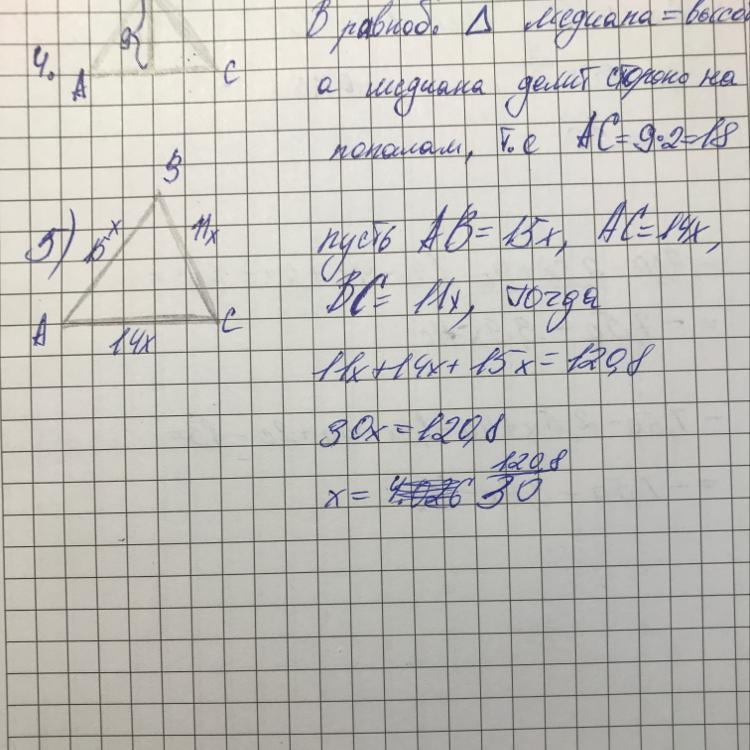 В равноб. Δ медиана = высо
4.
9
A
C
а медиана делит стороно на
пополам, т.е AC = 9·2 = 18
B
5)
15x
11x
пусть AB = 15x, AC = 14x,
BC = 11x, тогда
A
C
14x
11x + 14x + 15x = 120,8
30x = 120,8
120,8
x = 30